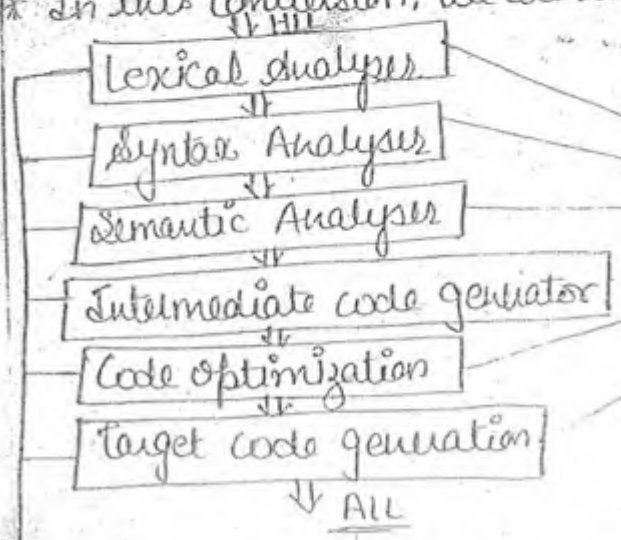 * In this conversion, we
HLL
Lexical Analyser
Syntax Analyser
Semantic Analyser
Intermediate code generator
Code Optimization
Target code generation
ALL